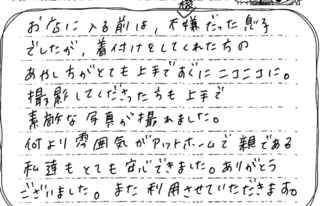 お店に入る前は、不機嫌だった息子
でしたが、着付けをしてくれた方の
あやし方がとても上手ですぐにニコニコに。
撮影してくださった方も上手で
素敵な写真が撮れました。
何より雰囲気がアットホームで親である
私達もとても安心できました。ありがとう
ございました。また利用させていただきます。